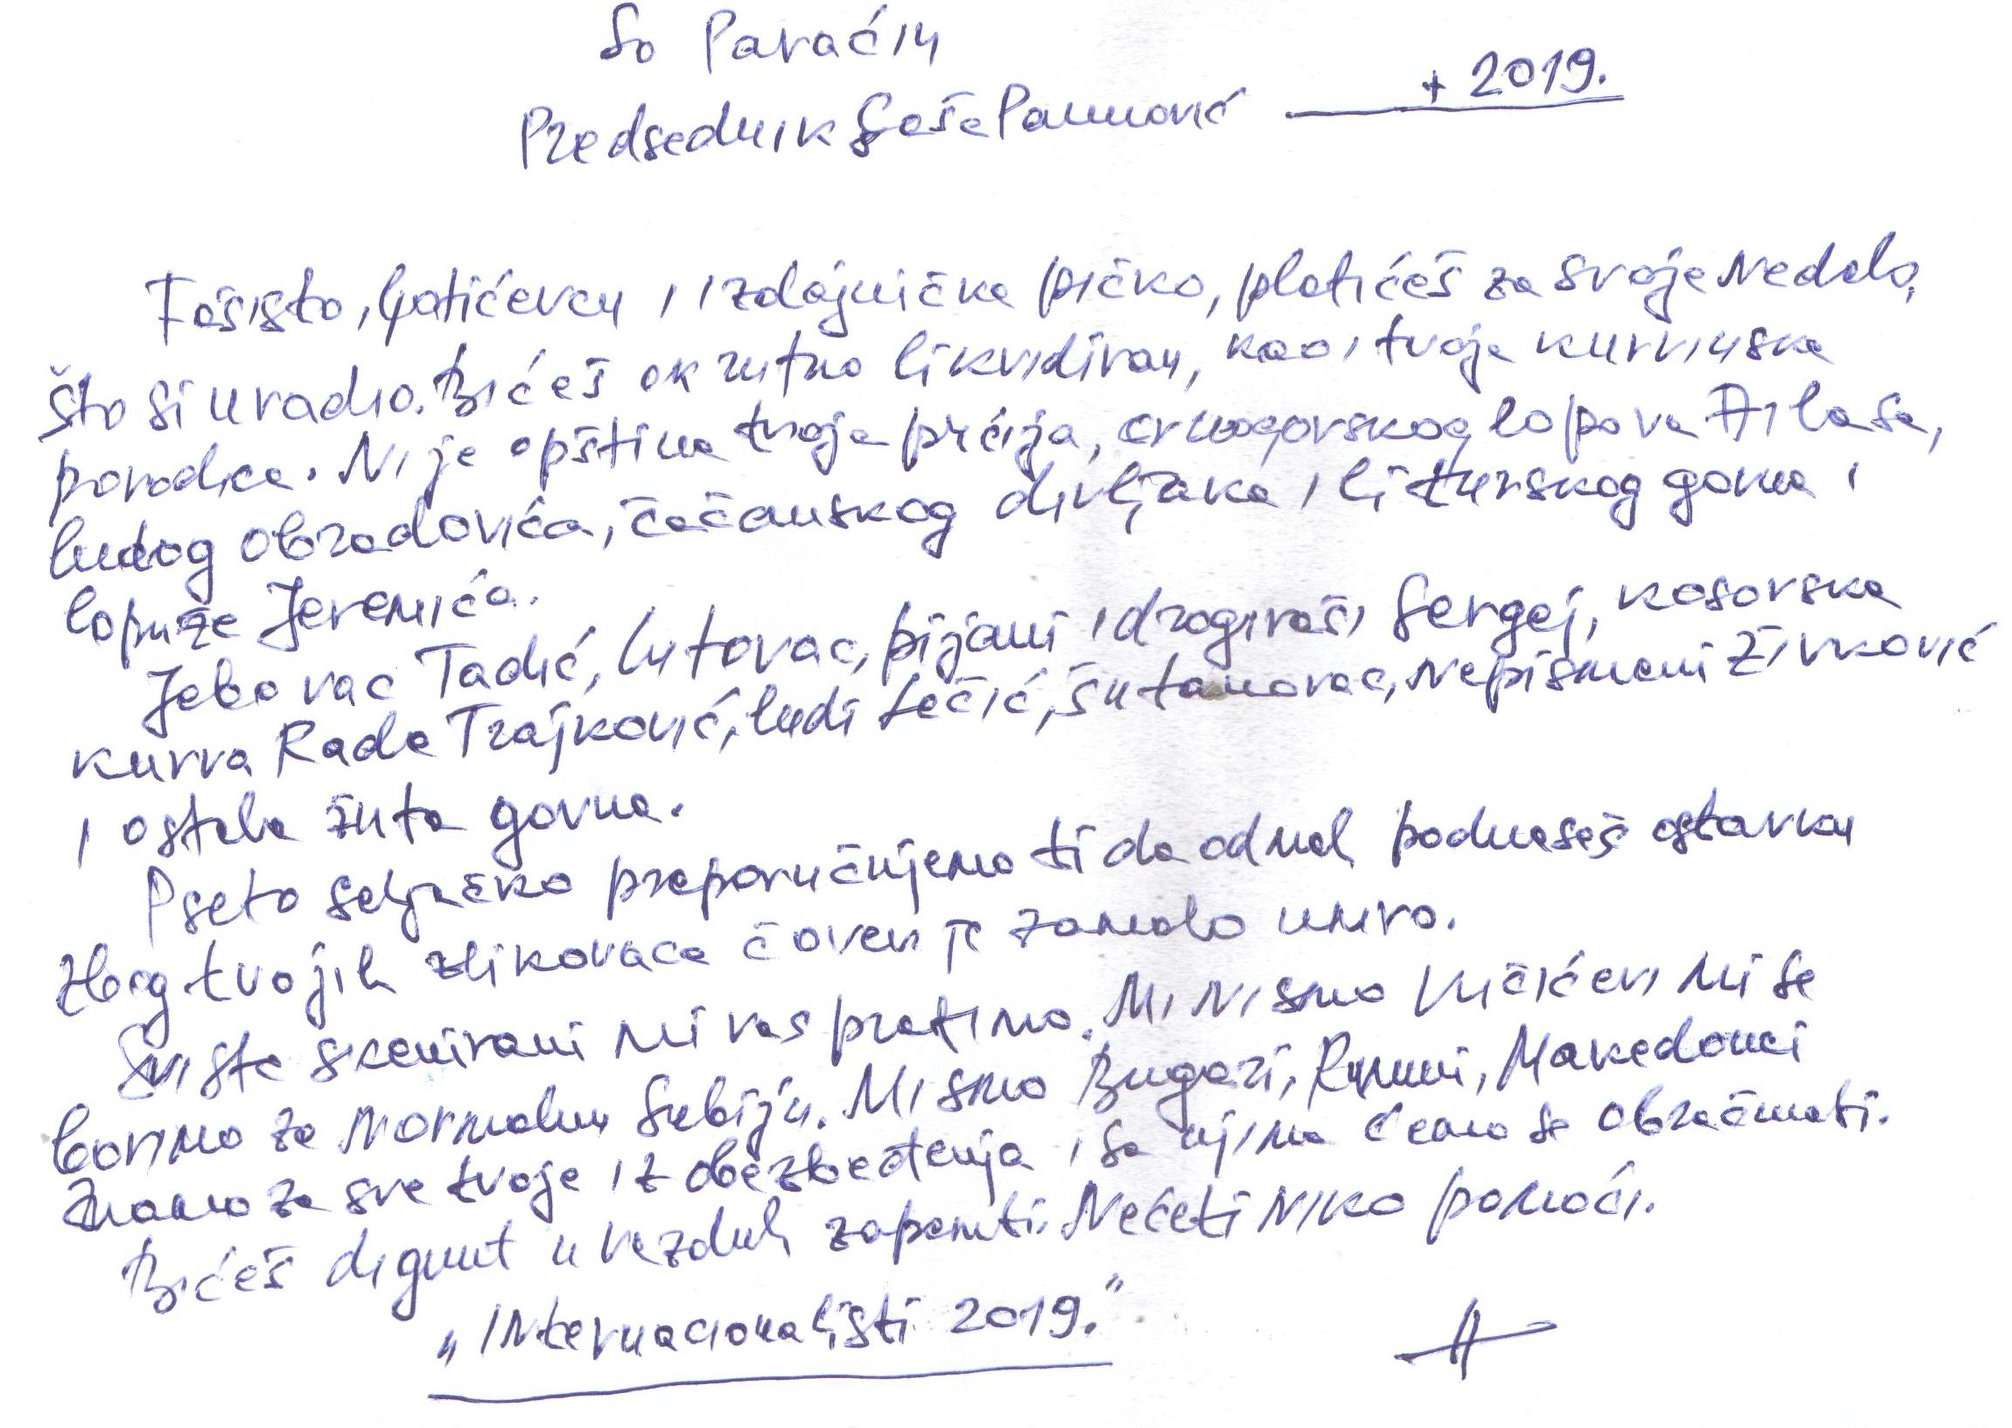 So Paraćin
+ 2019.
Predsednik Saša Paunović
Fašisto, ljotićevcu i izdajnička pičko, platićeš za svoje nedelo,
što si uradio. Bićeš okrutno likvidiran, kao i tvoja kurvinska
porodica. Nije opština tvoja prćija, crnogorskog lopova Đilasa,
ludog Obradovića, čačanskog divljaka i liturskog govna i
lopuže Jeremića.
Jebo vac Tadić, Lutovac, pijani i drogiraši Sergej, kosovska
kurva Rada Trajković, ludi Lečić, Šutanovac, nepismeni Živković
i ostala žuta govna.
Pseto seljačko preporučujemo ti da odmah podneseš ostavku
zbog tvojih zlikovaca čovek je zamalo umro.
Svi ste skenirani mi vas pratimo. Mi nismo Vučićevi mi se
borimo za normalnu Srbiju. Mi smo Bugari, Rumuni, Makedonci
znamo za sve tvoje iz obezbeđenja i sa njima ćemo se obračunati.
Bićeš dignut u vazduh zapamti. Neće ti niko pomoći.
„Internacionalisti 2019."